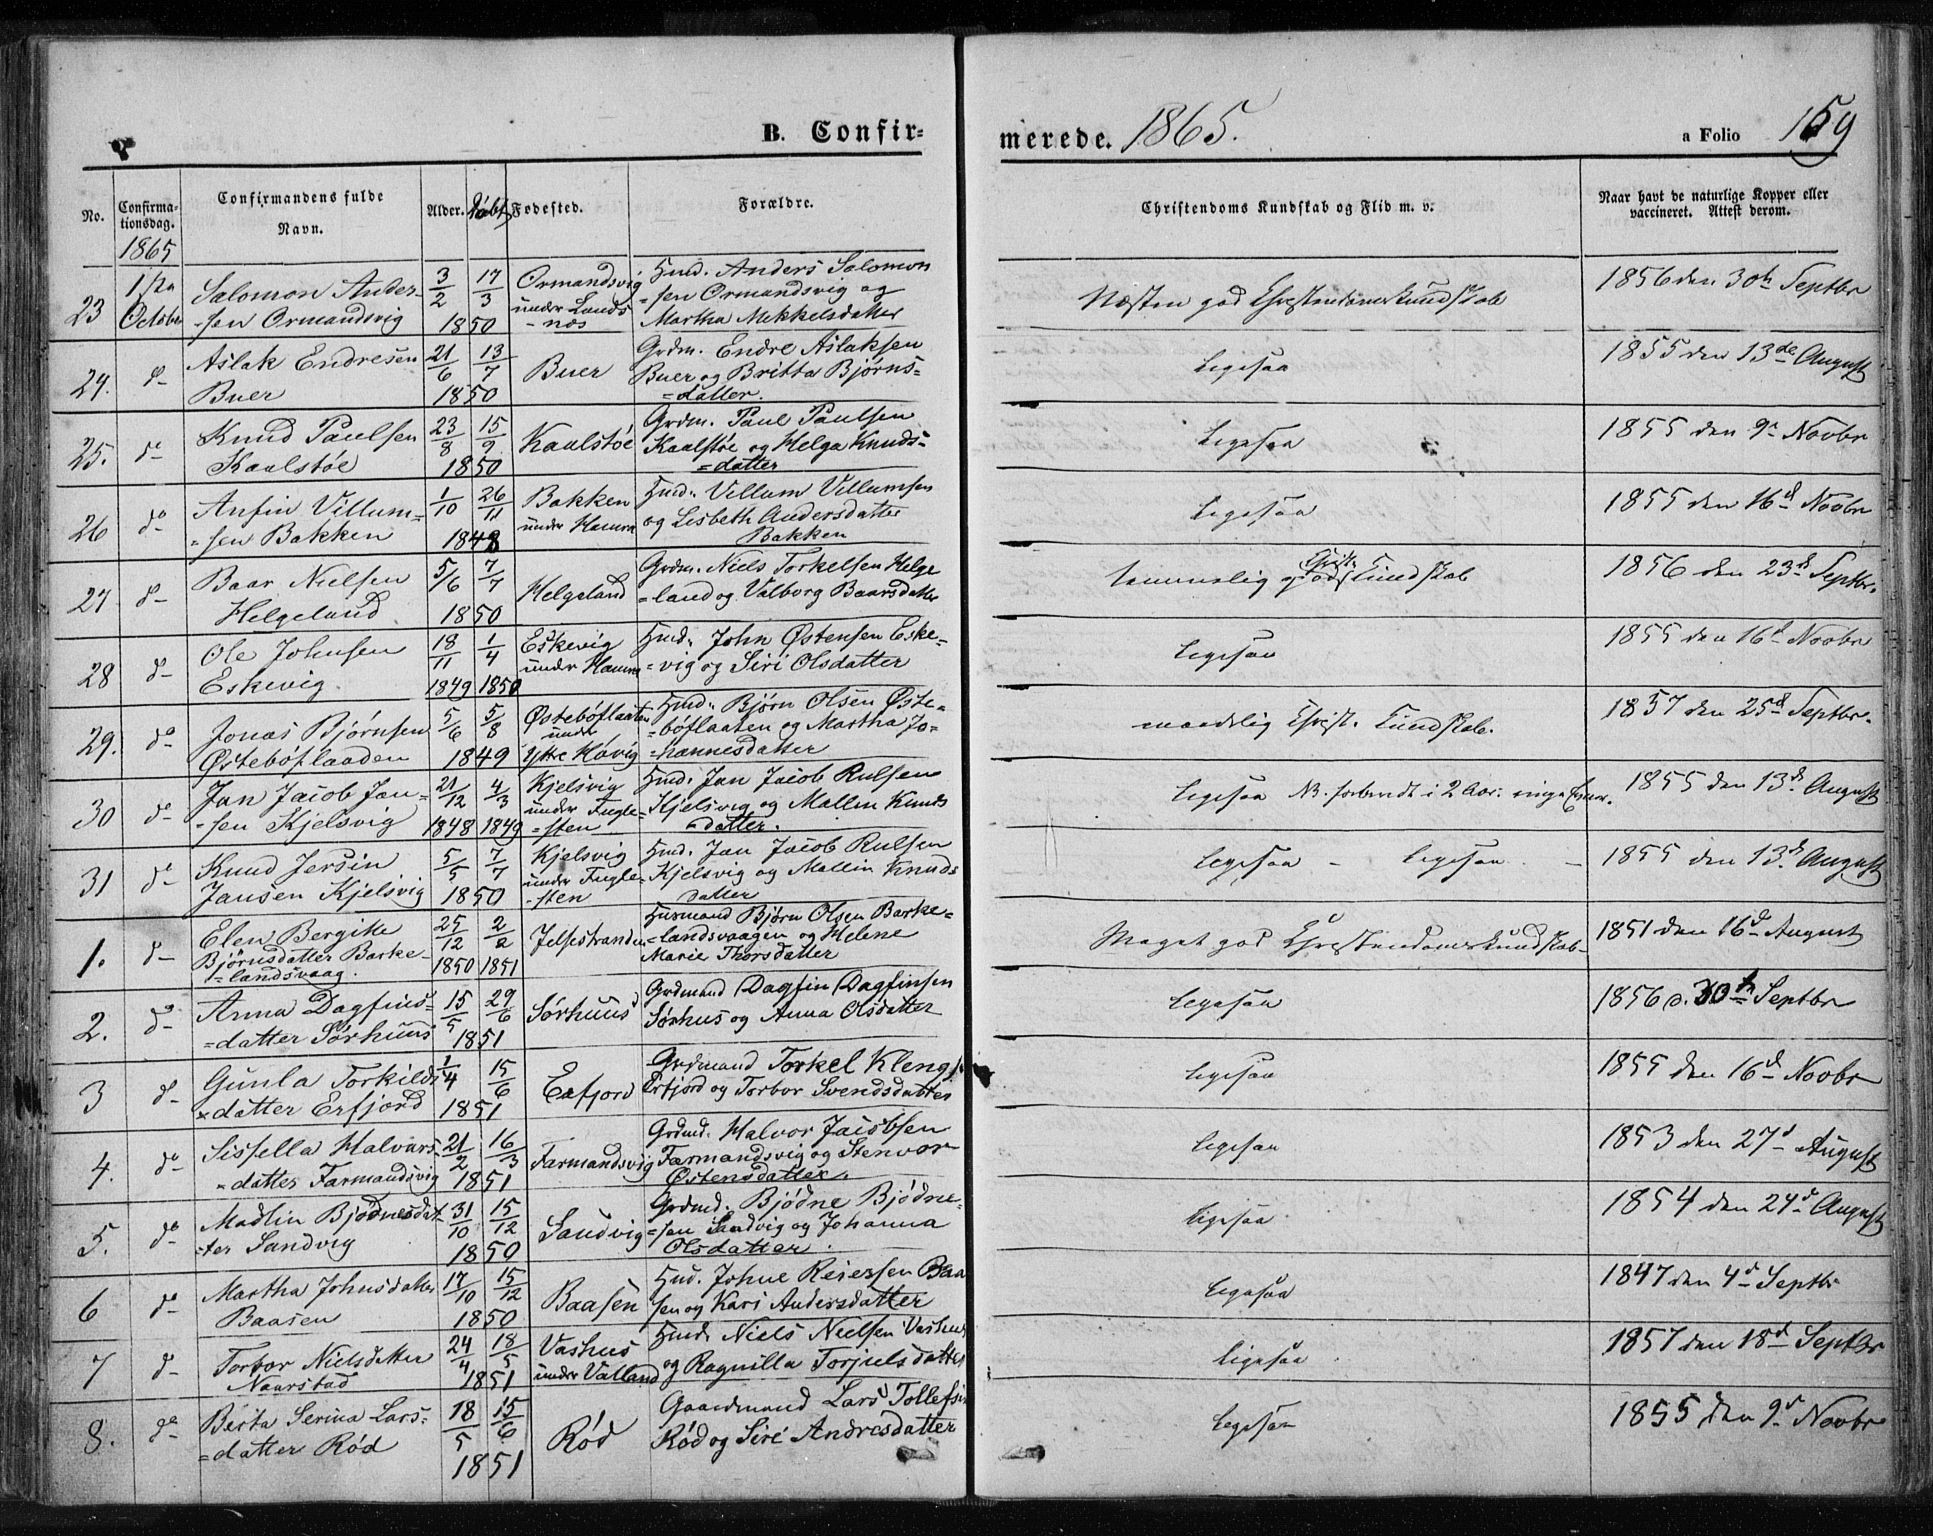 B. Confirmerede. 1865. a Folio 159
No. Confirmationsdag. Confirmandens fulde Navn. Alder. Døbt Fødested. Forældre. Christendoms Kundskab og Flid m. v. Naar havt de naturlige Kopper eller vaccineret. Attest derom.
1865
23 1ste October Salomon Ander-
-sen Ormandsvig 3/2 17/3 1850 Ormandsvig under Lands-
-næs Hmd. Anders Salomon
=sen Ormandsvig og
Martha Mikkelsdatter Næsten god Christendomskundskab 1856 den 30te Septbr
24. do Aslak Endresen
Buer 21/6 13/7 1850 Buer Grdm. Endre Aslaksen
Buer og Britta Bjørns-
=datter. Ligesaa 1855 den 13de August
25. do Knud Paulsen
Kaalstøe 23/8 15/9 1850 Kaalstøe Grdm. Paul Paulsen
Kaalstøe og Helga Knuds=
=datter Ligesaa 1855 den 9d Novbr
26 do Anfin Villum=
=sen Bakken 1/10 26/11 1848 Bakken
under Hamra Hmd. Villum Villumsen
og Lisbeth Andersdatter
Bakken Ligesaa 1855 den 16d Novbr
27 do Baar Nielsen
Helgeland 5/6 7/7 1850 Helgeland Grdm. Niels Torkelsen Helge
=land og Valborg Baarsdatter temmelig god Christ. Kundskab 1856 den 23d Septbr.
28 do Ole Johnsen
Eskevig. 18/11 1849 1/4 1850 Eskevig
under Hamra Hmd. John Østensen Eske-
=vig og Siri Olsdatter Ligesaa 1855 den 16d Novbr
29. do Jonas Bjørnsen
Østebøflaaden 5/6 5/8 1849 Østebøflaaten
under
Ytre Høvig Hmd. Bjørn Olsen Øste=
=bøflaaten og Martha Jo=
=hannesdatter maadelig Christ. Kundskab. 1857 den 25d Septbr.
30 do Jan Jacob Jan-
-sen Kjelsvig 21/12 1848 4/3 1849 Kjelsvig
under Fugle-
=sten Hmd. Jan Jacob Rulsen
Kjelsvig og Mallin Knuds
datter. Ligesaa NB. forberedt i 2 Aar. 1855 den 13d August
31 do Knud Jersin
Jansen Kjelsvig 5/5 7/7 1850 Kjelsvig
under Fugle-
-sten Hmd. Jan Jacob Rulsen
Kjelsvig og Mallin Knuds
datter Ligesaa - Ligesaa - 1855 den 13d August
1. do Elen Bergitte
Bjørnsdatter Barke-
landsvaag. 25/12 1850 2/2 1851 Jelsestranden Husmand Bjørn Olsen Barke=
=landsvaagen og Helene
Marie Thorsdatter Meget god Christendomskundskab 1851 den 16d August
2. do Anna Dagfins=
=datter Sørhuus 15/5 29/6 1851 Sørhuus Grdmand Dagfin Dagfinsen
Sørhus og Anna Olsdatter Ligesaa 1856 d. 30te Septbr
3 do Gunla Torkilds
datter Erfjord 1/4 15/6 1851 Erfjord Grdmand Torkel Klengs
Erfjord og Torbor Svendsdatter Ligesaa 1855 den 16d Novbr
4. do Sissella Halvors
datter Farmandsvig 21/2 16/3 1851 Farmandsvig Grdmd. Halvor Jacobsen
Farmandsvig og Stenvor
Østensdatter. Ligesaa 1853 den 27d August
5. do Madlin Bjødnesdat
=ter Sandvig 31/10 15/12 1850 Sandvig Grdmd. Bjødne Bjødne-
=sen Sandvig og Johanna
Olsdatter. Ligesaa 1854 den 24d August
6 do Martha Johnsdatter
Baasen 17/10 15/12 1850 Baasen Hmd. Johne Reiersen Baa
sen og Kari Andersdatter Ligesaa 1847 den 4d Septbr
7 do Torbor Nielsdatter
Naarstad 24/4 18/5 1851 Vashus
under Vatland Hmd. Niels Nielsen Vashus
og Ragnilla Torjulsdatter Ligesaa 1857 den 18d Septbr
8. do Berta Serina Lars=
=datter Rød 18/5 15/6 1851 Rød Gaardmand Lars Tollefsen
Rød og Siri Andresdatter Ligesaa 1855 den 9d Novbr